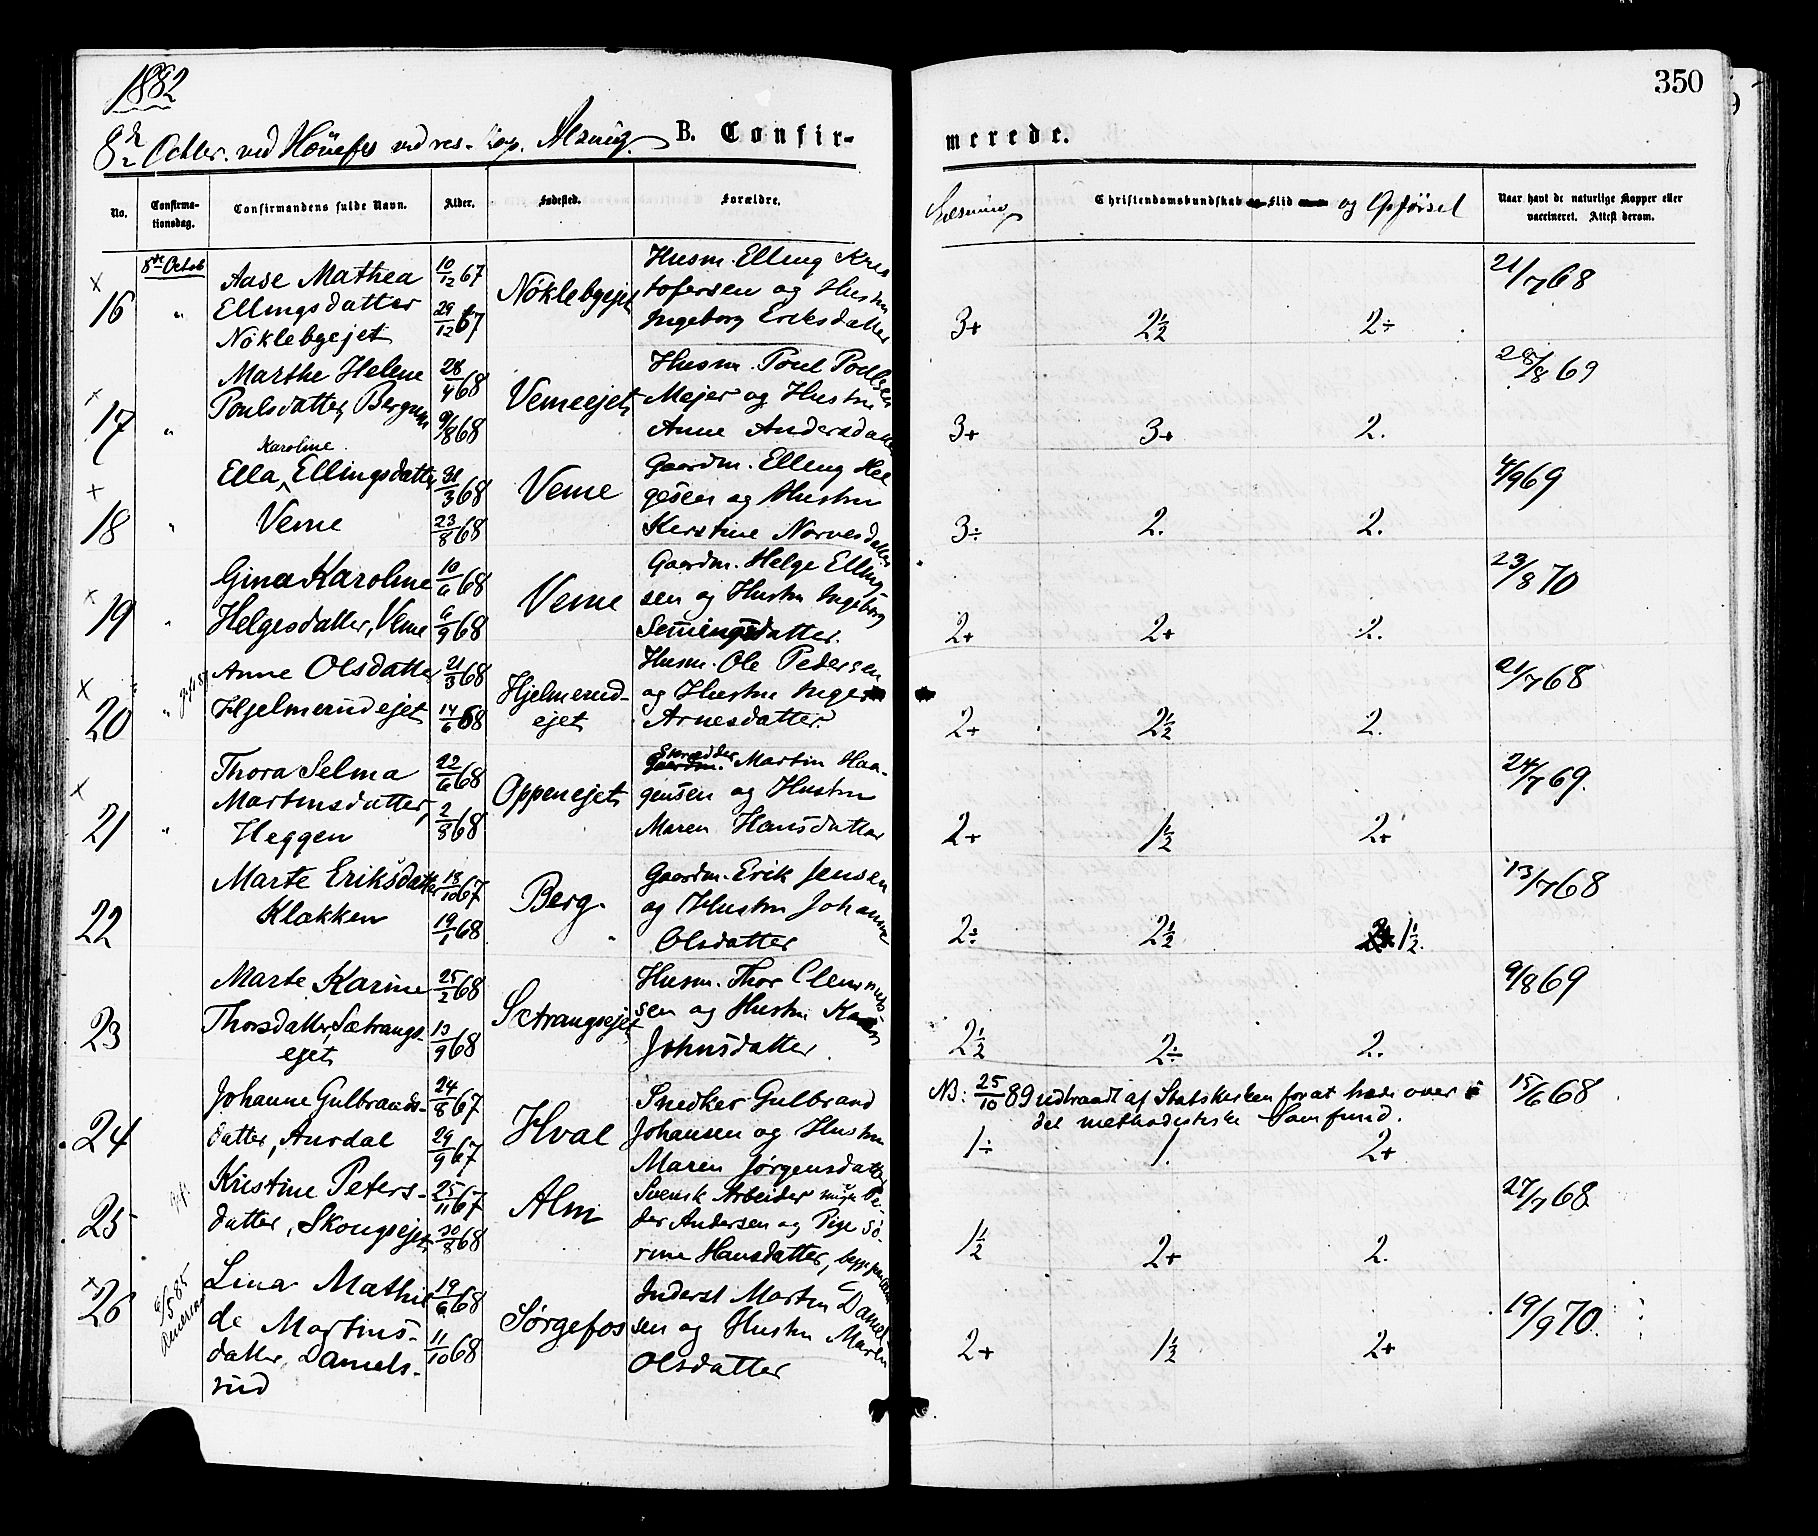 1882
350
8de Octbr. ved Hönefos ved res. Cap.
B. Confir-
merede.
No.
Confirma-
tionsdag.
Confirmandens fulde Navn.
Alder.
Fødested.
Forældre.
Christendomskundskab Flid og Opførsel
Naar havt de naturlige Kopper eller
vaccineret. Attest derom.
8de Octob
x
16
"
Aase Mathea
Ellingsdatter
Nöklebyejet
10/12 67
29/12 67
Nöklebyejet
Husm. Elling Kris
tofersen og Hustru
Ingeborg Eriksdatter
3+
2½
2÷
21/7 68
x
17
"
Marthe Helene
Poulsdatter, Bergum
28/4 68
9/8 68
Vemeejet
Husm. Poul Poulsen
Mejer og Hustru
Anne Andersdatter
3+
3+
2.
28/8 69
x
18
"
Karoline
Ella Ellingsdatter
Veme
31/3 68
23/8 68
Veme
Gaardm. Elling Hel
gesen og Hustru
Kerstine Narvesdatter
3÷
2.
2.
4/9 69
x
19
"
Gina Karoline
Helgesdatter, Veme
10/6 68
6/9 68
Veme
Gaardm. Helge Elling
sen og Hustru Ingeborg
Semingsdatter.
2+
2+
2.
23/8 70
x
20
"
Anne Olsdatter
Hjelmerudejet
21/3 68
14/6 68
Hjelmerud-
ejet
Husm. Ole Pedersen
og Hustru Inger
Arnesdatter
2+
2½
2.
21/7 68
x
21
"
Thora Selma
Martinsdatter,
Heggen
22/6 68
2/8 68
Oppenejet
Skrædder
Gaardm. Martin Haa-
gensen og Hustru
Maren Hansdatter
2+
1½
2+
24/7 69.
22
Marte Eriksdatter
Klækken
18/10 67
19/1 68
Berg.
Gaardm. Erik Jensen
og Hustru Johanne
Olsdatter
2÷
2½
1½.
13/7 68
23
Marte Karine
Thorsdatter, Sætrangs-
ejet
25/2 68
13/9 68
Sætrangsejet
Husm. Thor Clemmet
sen og Hustru Karen
Johnsdatter.
2½
2÷
2.
9/8 69
24
Johanne Gulbrands-
datter, Aurdal
24/8 67
29/9 67
Hval
Snedker Gulbrand
Johansen og Hustru
Maren Jørgensdatter
NB: 25/10 89 udtraadt af Statskirken for at træde over i
det methodistiske Samfund.
1÷
1.
2+
15/6 68
25
gift
Kristine Peters-
datter, Skougsejet
25/11 67
30/8 68
Alm
Svensk Arbeider ungk. Pe-
der Andersen og Pige Sö-
rine Hansdatter, begge paa Alm
1½
2+
2.
27/7 68
x
26
6/5 85
America
Lina Mathil
de Martins-
datter, Daniels-
rud
19/6 68
11/10 68
Sørgefos
Inderst Martin Daniel
sen og Hustru Maren
Olsdatter
2+
1½
2+
19/9 70.